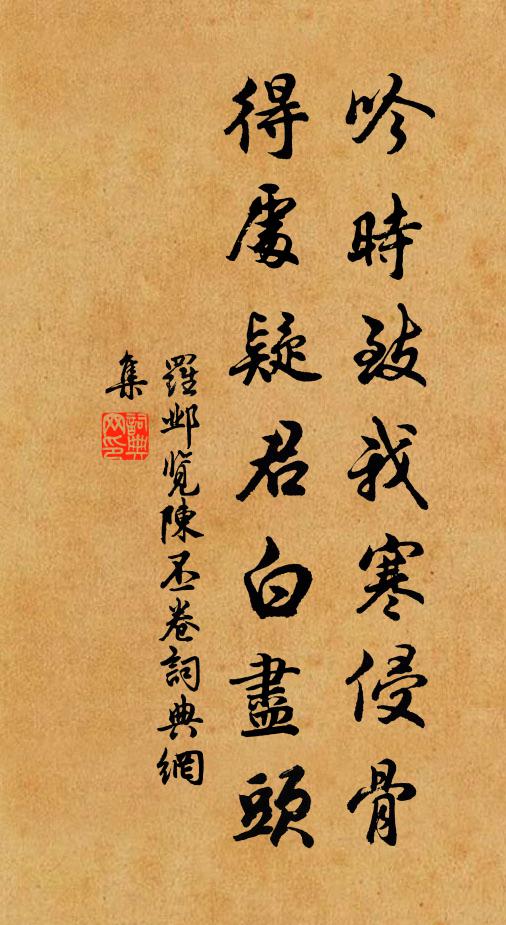 吟時致我寒侵骨
得處疑君白盡頭
羅鄴覽陳丕卷詞典網
集
詞典網印